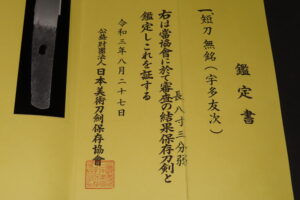 鑑定書
一、短刀 無銘（宇多友次）
長八寸三分強
右は當協會に於て審査の結果保存刀剣と
鑑定しこれを証する
令和三年八月二十七日
公益財団法人日本美術刀剣保存協會